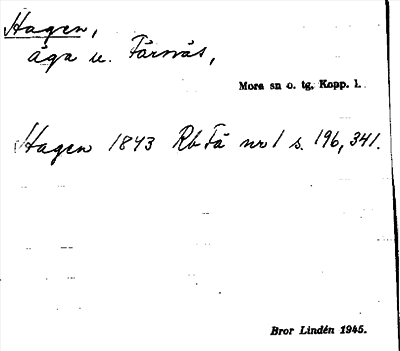 Hagen,
äga u. Färnäs,
Mora sn o. tg, Kopp. l.
Hagen 1843 Rb Fä nr 1 s. 196, 341.
Bror Lindén 1945.